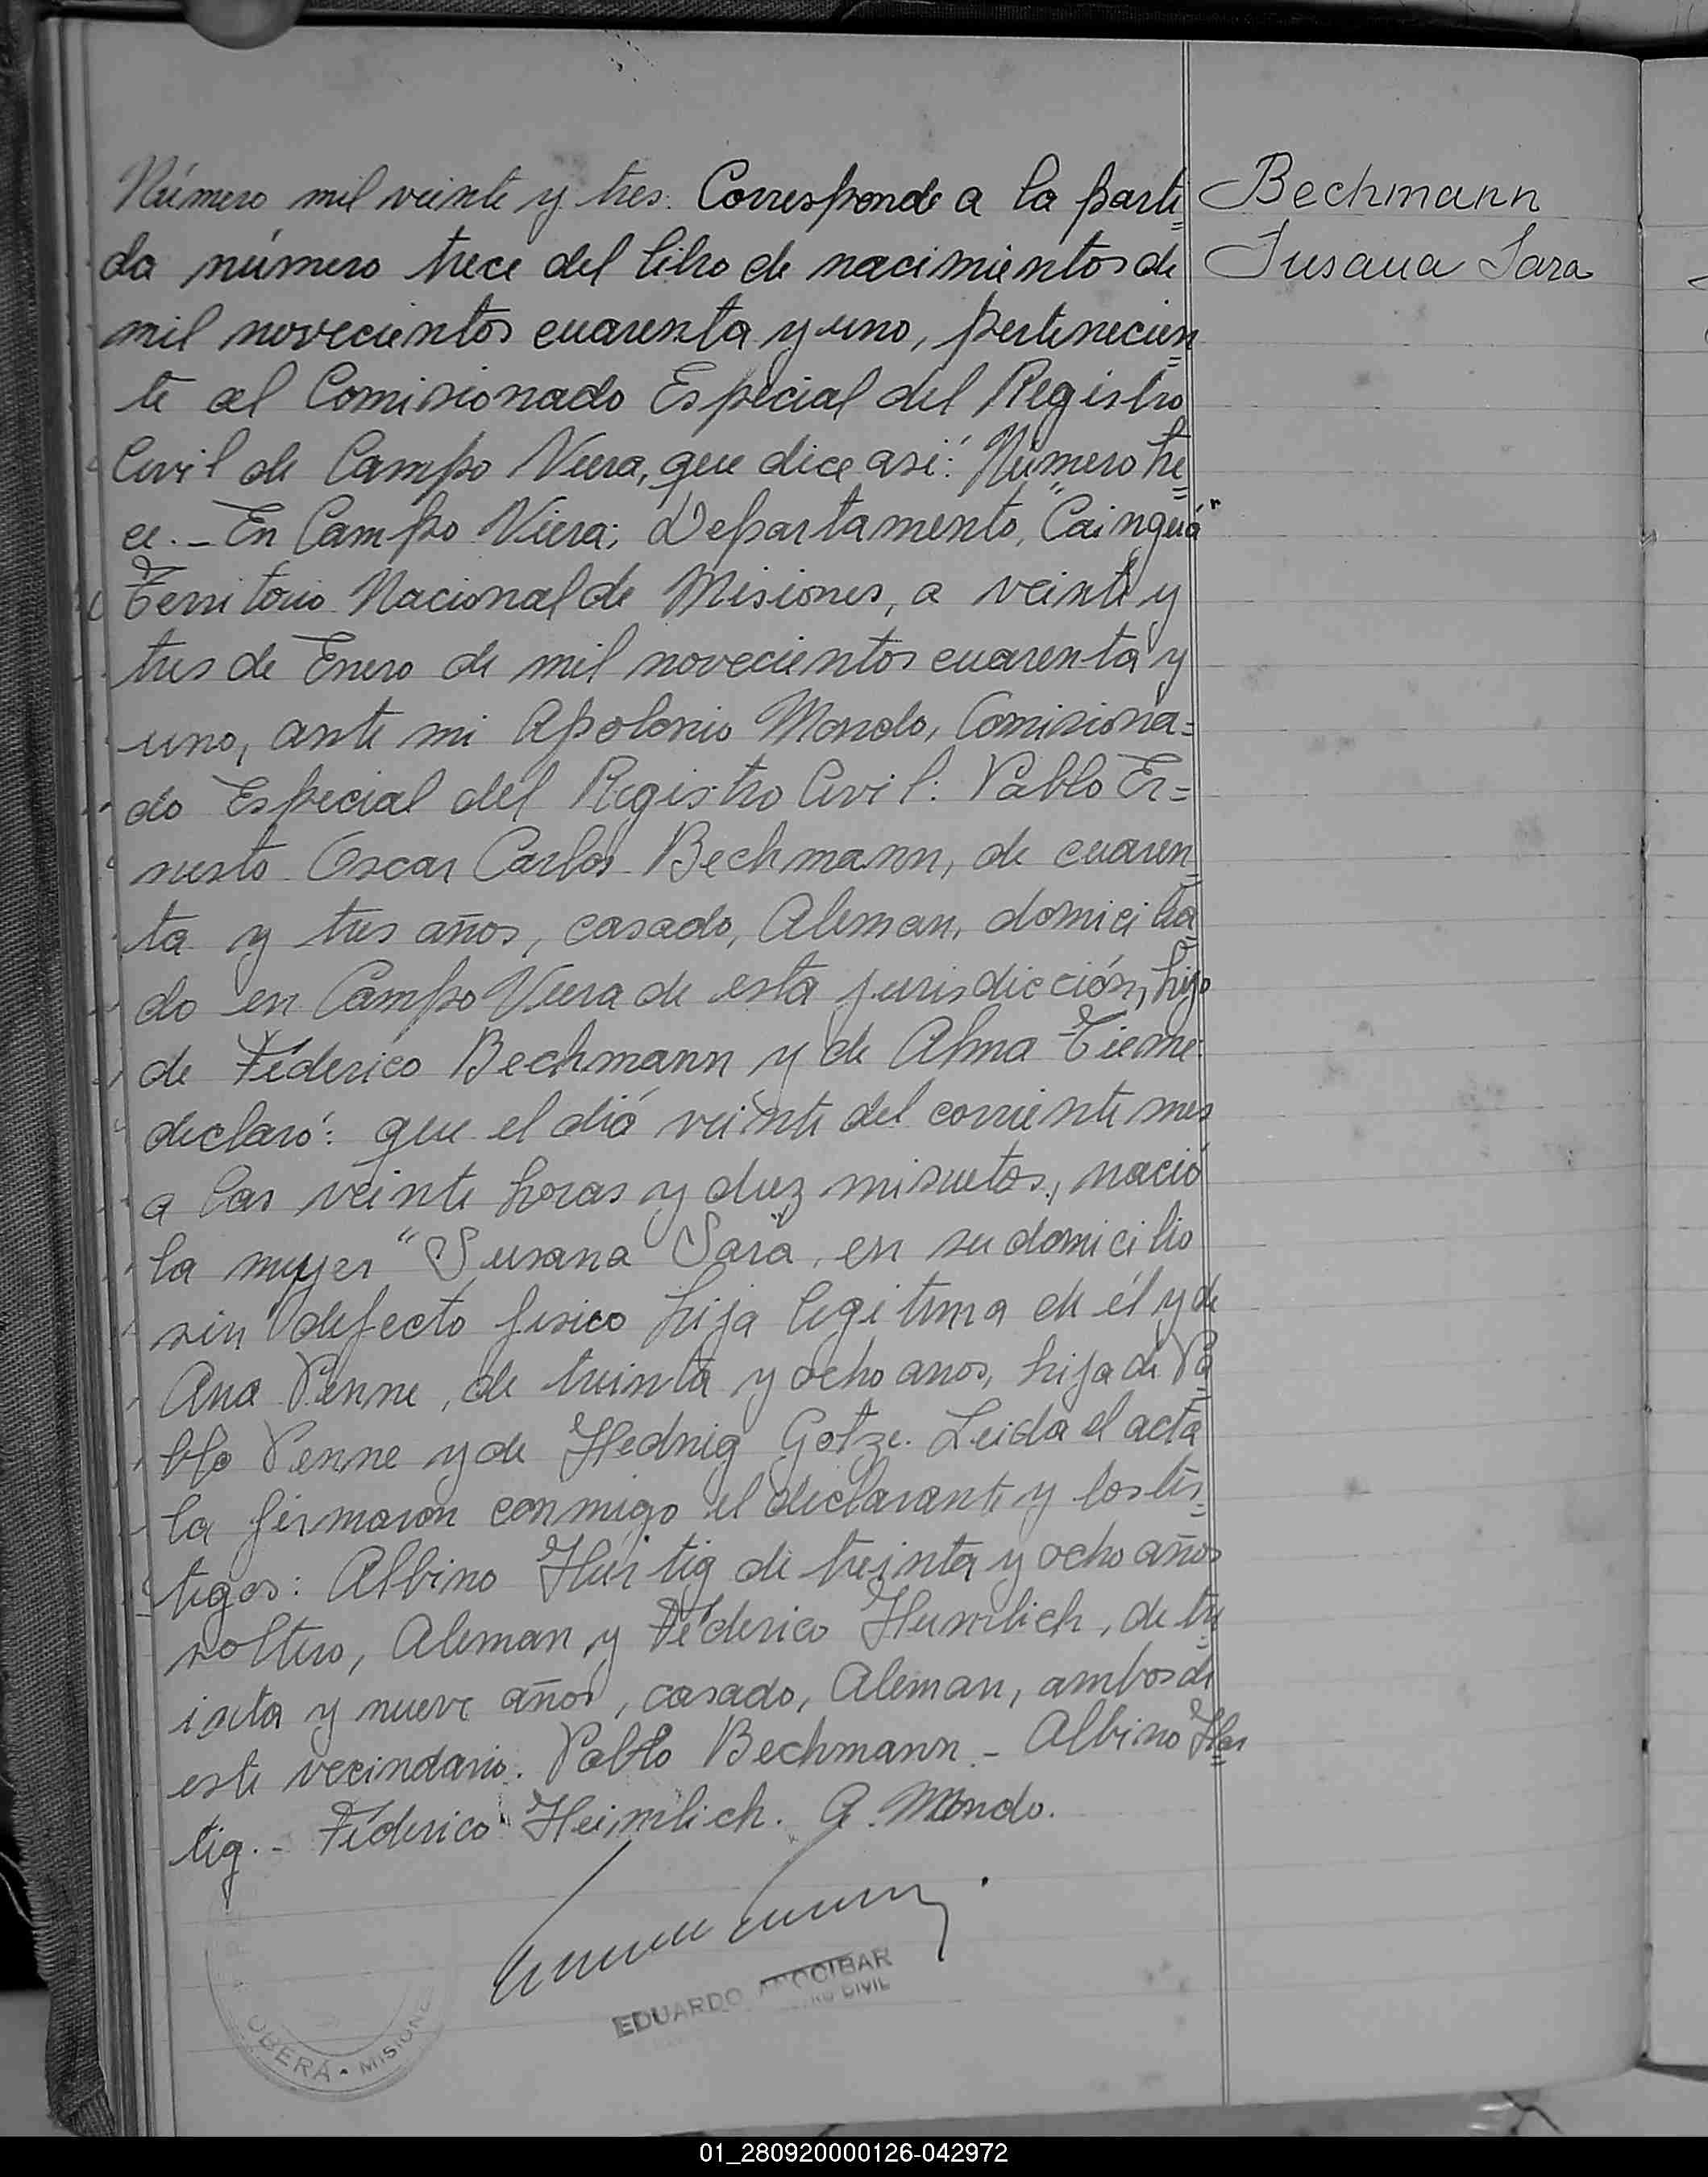 Número mil veinte y tres. Corresponde a la parti=
da número trece del libro de nacimientos de
mil novecientos cuarenta y uno, pertenecien=
te al Comisionado Especial del Registro
Civil de Campo Viera, que dice así: Número tre=
ce.- En Campo Viera; Departamento, "Cainguá"
Territorio Nacional de Misiones, a veinte y
tres de Enero de mil novecientos cuarenta y
uno, ante mi Apolonio Mondo, Comisiona=
do Especial del Registro Civil: Pablo Er=
nesto Oscar Carlos Bechmann, de cuaren=
ta y tres años, casado, Aleman, domicilia=
do en Campo Viera de esta jurisdicción, hijo
de Féderico Bechmann y de Alma Tieme
declaró: que el diá veinte del corriente mes
a las veinte horas y diez minutos, nació
la mujer "Susana Sara", en su domicilio
sin defecto fisico hija legitima de él y de
Ana Penne, de treinta y ocho anos, hija de Pa=
blo Penne y de Hednig Gotze. Leida el acta
la firmaron conmigo el declarante y los tes=
tigos: Albino Hurtig de treinta y ocho años
soltero, Aleman y Féderico Heimlich, de tre=
inta y nueve años, casado, Aleman, ambos de
este vecindario. Pablo Bechmann - Albino Hur=
tig.- Féderico Heimlich. A. Mondo.
Bechmann
Susana Sara
EDUARDO
CIVIL
OBERÁ • MISIONES
01_280920000126-042972